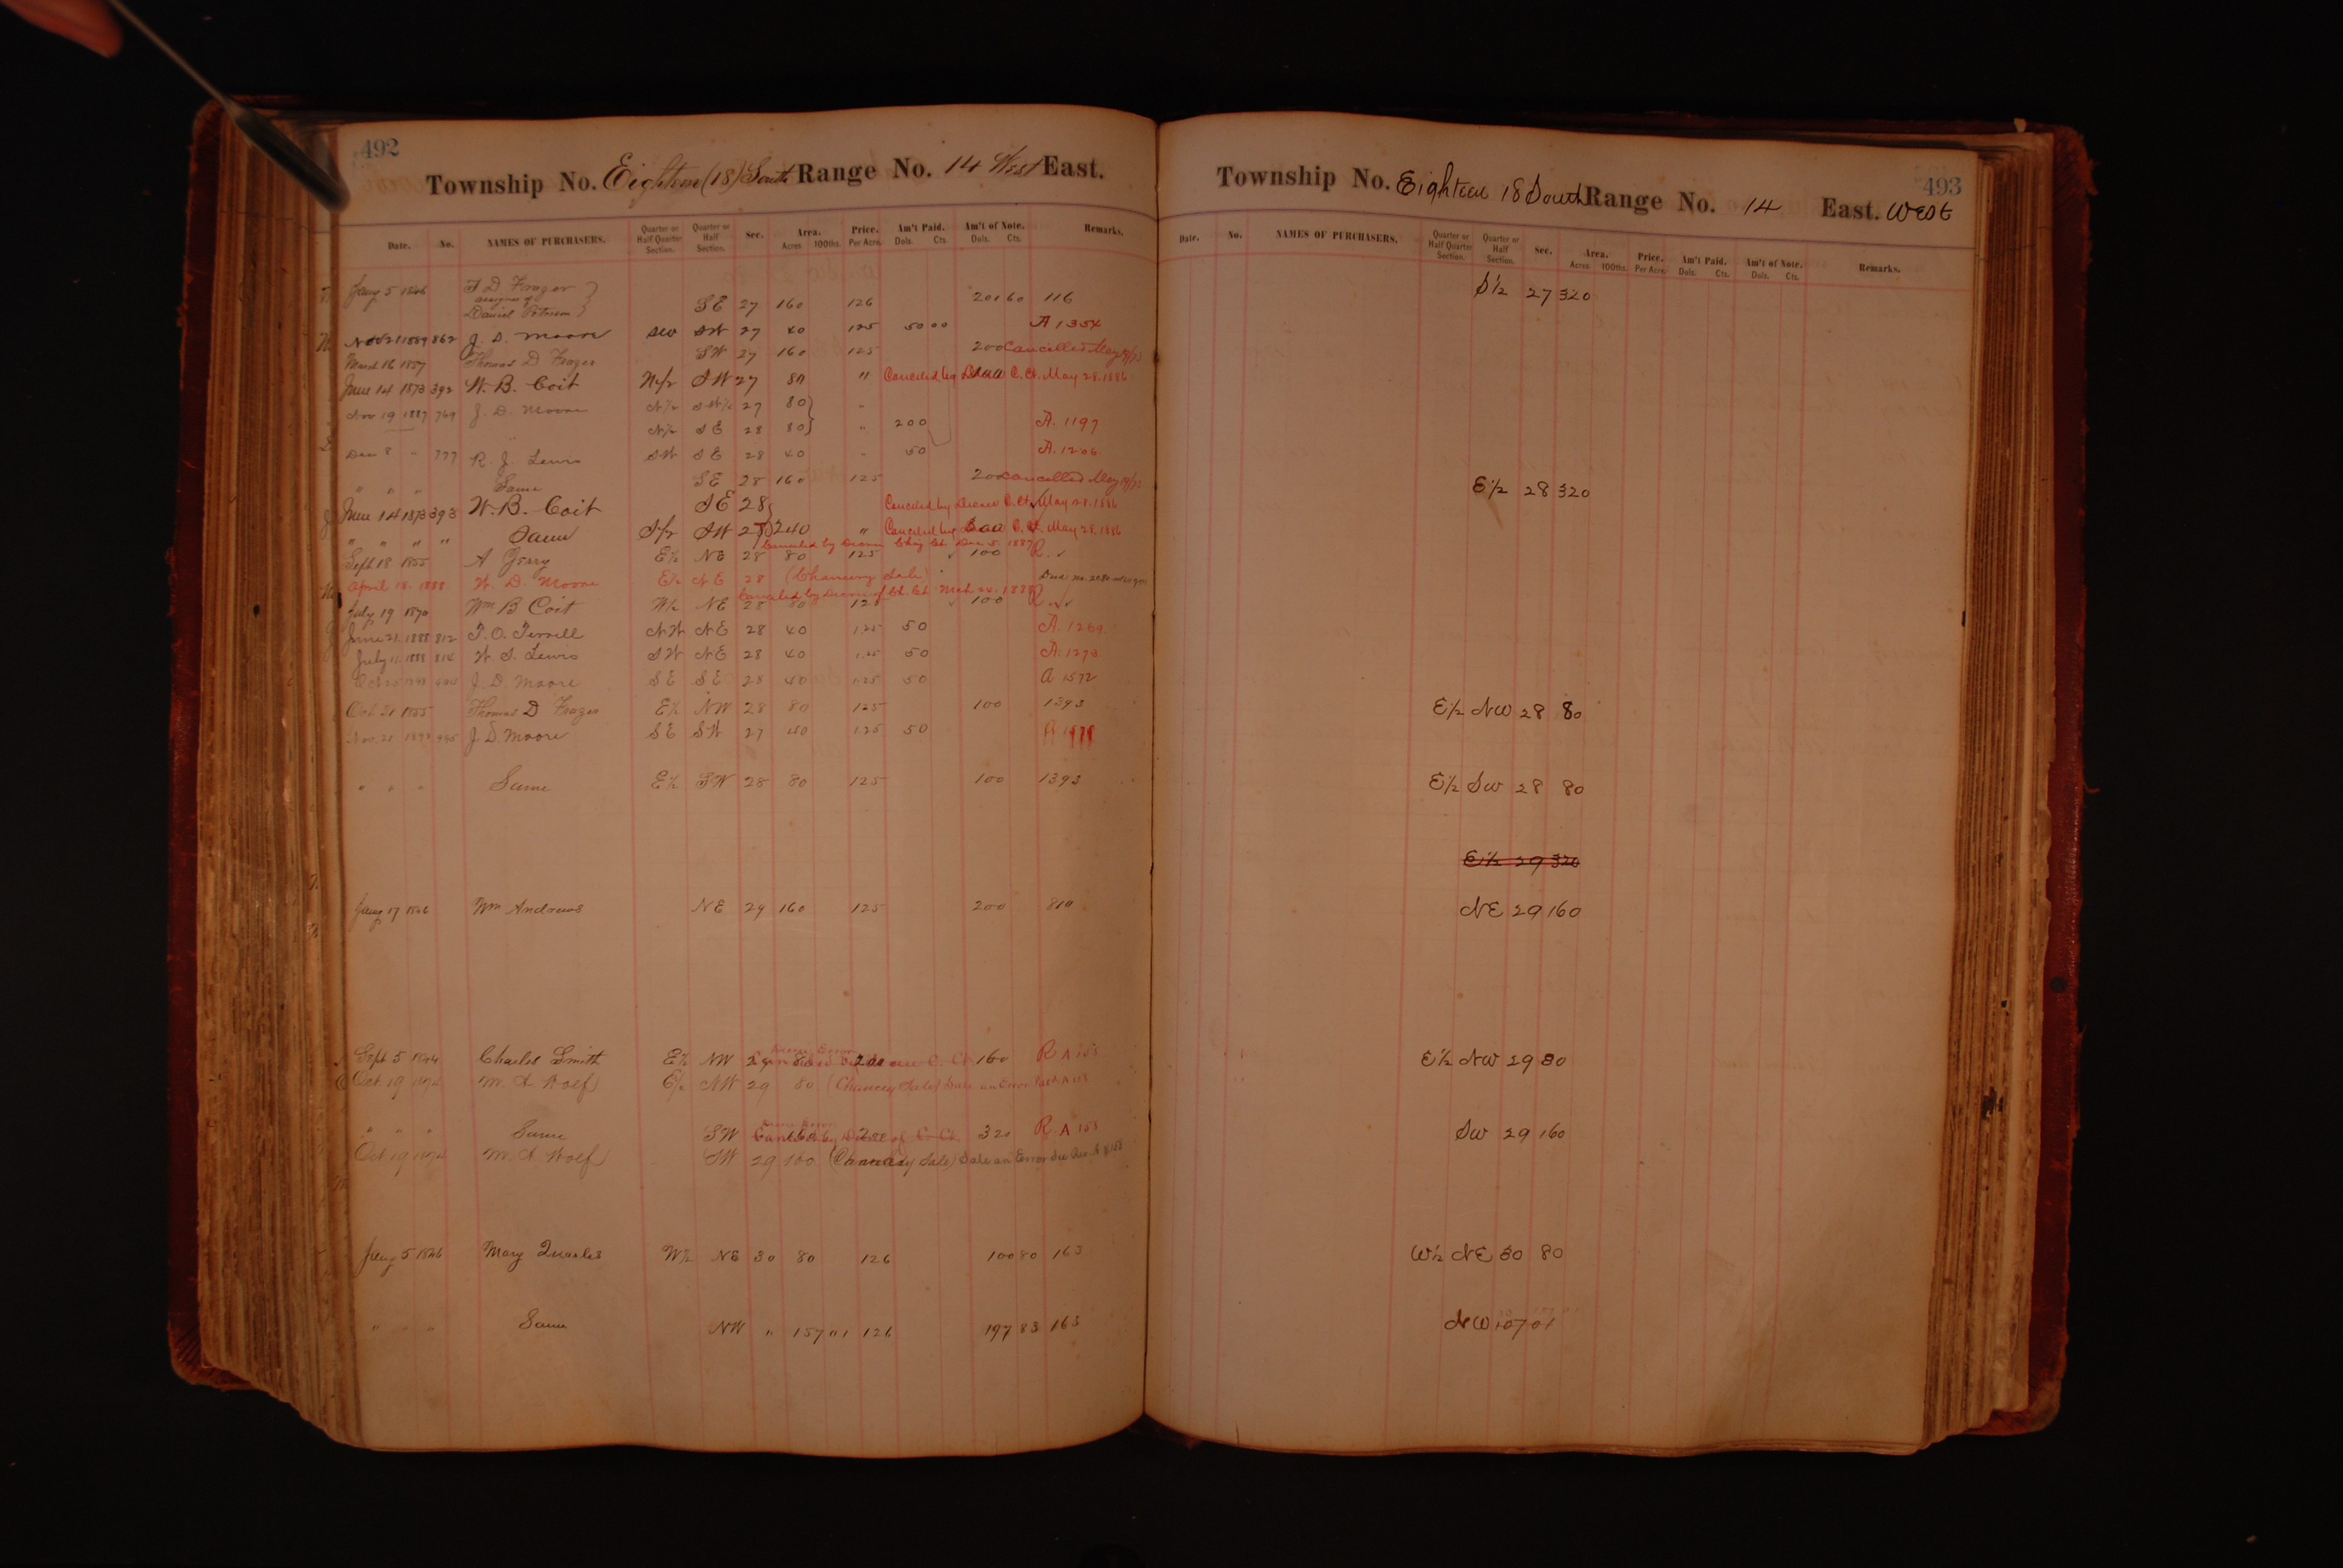 492
Township No. Eighteen (18) South Range No. 14 West East.
Date. No. NAMES OF PURCHASERS. Quarter or Half Quarter Section. Quarter or Half Section. Sec. Area. Acres 100ths. Price. Per Acre. Am't Paid. Dols. Cts. Am't of Note. Dols. Cts. Remarks.
Jany 5 1846 T D Frazer
assignee of
Daniel SE 27 160 126 201 60 116
1889 862 J. D. Moore SW SW 27 40 125 50 00 A 1354
March 16 1857 Thomas D Frazer SW 27 160 125 200 Cancelled May
June 14 1873 392 W. B. Coit N1/2 SW 27 80 " Canceled by C. Ct. May 28. 1886
Nov 19 1887 769 J. D. Moore N1/2 SW1/4 27 80 "
N1/2 SE 28 80 " 200 A. 1197
Dec 8 " 777 R. J. Lewis SW SE 28 40 " 50 A. 1206
" " " Same SE 28 160 125 200 Cancelled May
June 14 1873 393 W. B. Coit SE 28 Canceled by Decree C. Ct. May 28. 1886
" " " " Same S1/2 SW 27 240 " Canceled by C. Ct. May 28. 1886
Canceled by Decree Chcy Ct. Dec 5. 1887
Sept 18 1855 A Gerry E1/2 NE 28 80 125 100 R.
April 18. 1888 W. D. Moore E1/2 NE 28 (Chancery Sale)
Canceled by Decree of Ch. Ct. Mch. 24. 1888
July 19 1870 Wm B Coit W1/2 NE 28 80 125 100 R.
June 21. 1888 812 T. O. Terrell NW NE 28 40 1.25 50 A. 1269
July 11. 1888 814 W. S. Lewis SW NE 28 40 1.25 50 A. 1273
J. D. Moore SE SE 28 40 1.25 50 A 1572
Oct 21 1855 Thomas D Frazer E1/2 NW 28 80 125 100 1393
Nov. 21 J. D. Moore SE SW 27 40 1.25 50
" " " Same E1/2 SW 28 80 125 100 1393
Jany 17 Wm Andrews NE 29 160 125 200 810
Sept 5 Charles Smith E1/2 NW 29 80 200 160 R A 153
Oct 19 M. A Wolf E1/2 NW 29 80 (Chancery Sale) Sale an Error
" " " Same SW 160 200 320 R. A 153
Oct 19 M. A Wolf SW 29 160 (Chancery Sale) Sale an Error
Jany 5 1846 Mary Quarles W1/2 NE 30 80 126 100 80 163
" " " Same NW " 157 01 126 197 83 163
493
Township No. Eighteen 18 South Range No. 14 East. West
Date. No. NAMES OF PURCHASERS. Quarter or Half Quarter Section. Quarter or Half Section. Sec. Area. Acres 100ths. Price. Per Acre. Am't Paid. Dols. Cts. Am't of Note. Dols. Cts. Remarks.
S1/2 27 320
E1/2 28 320
E1/2 NW 28 80
E1/2 SW 28 80
E1/2 29 320
NE 29 160
E1/2 NW 29 80
SW 29 160
W1/2 NE 30 80
NW 157 01